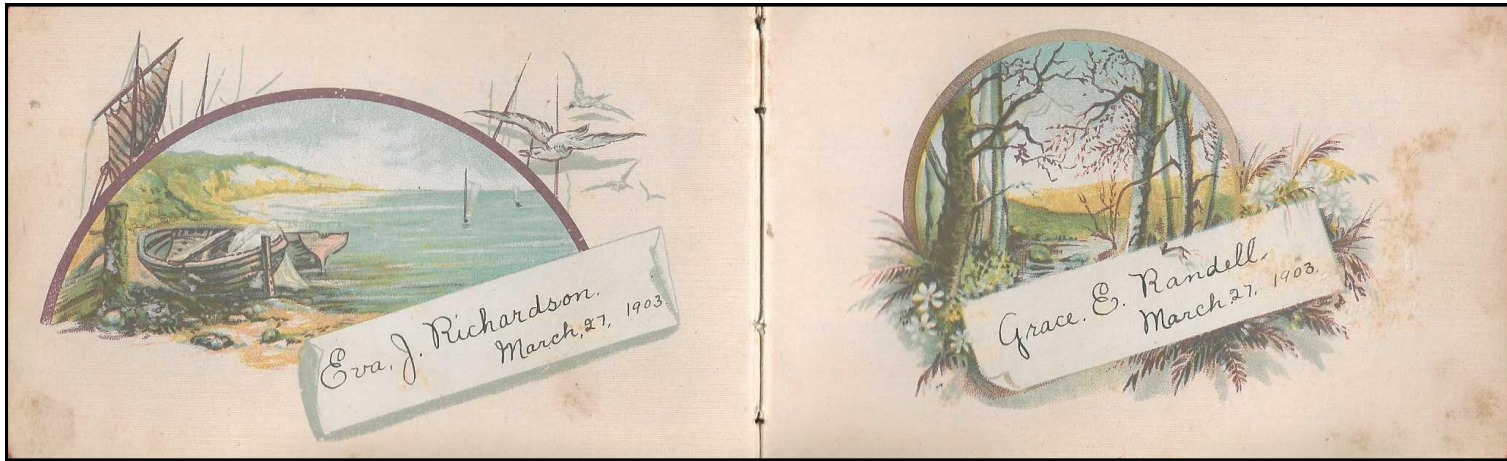 Eva. J. Richardson.
March, 27, 1903.
Grace. E. Randell.
March 27, 1903.